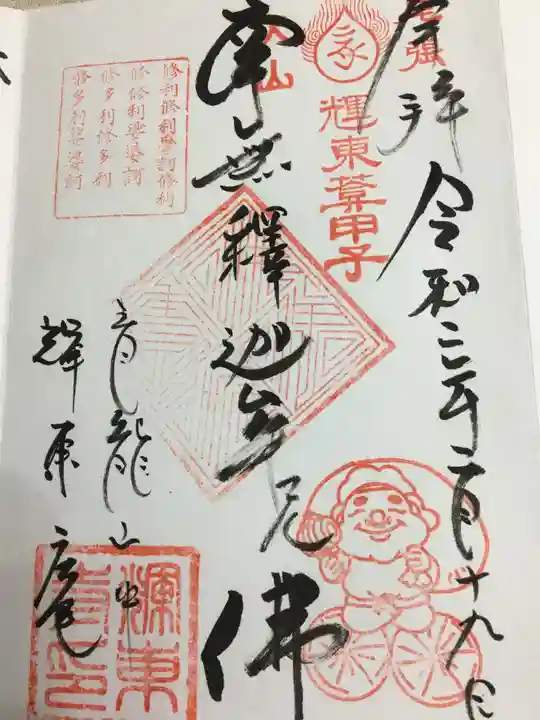 奉拝
令和二年二月十九日
輝東葊甲子
永
南無釋迦牟尼佛
山
修利修利摩訶修利
修修利娑婆訶
修多利修多利
修多利娑婆訶
青龍山中
輝東庵
輝東